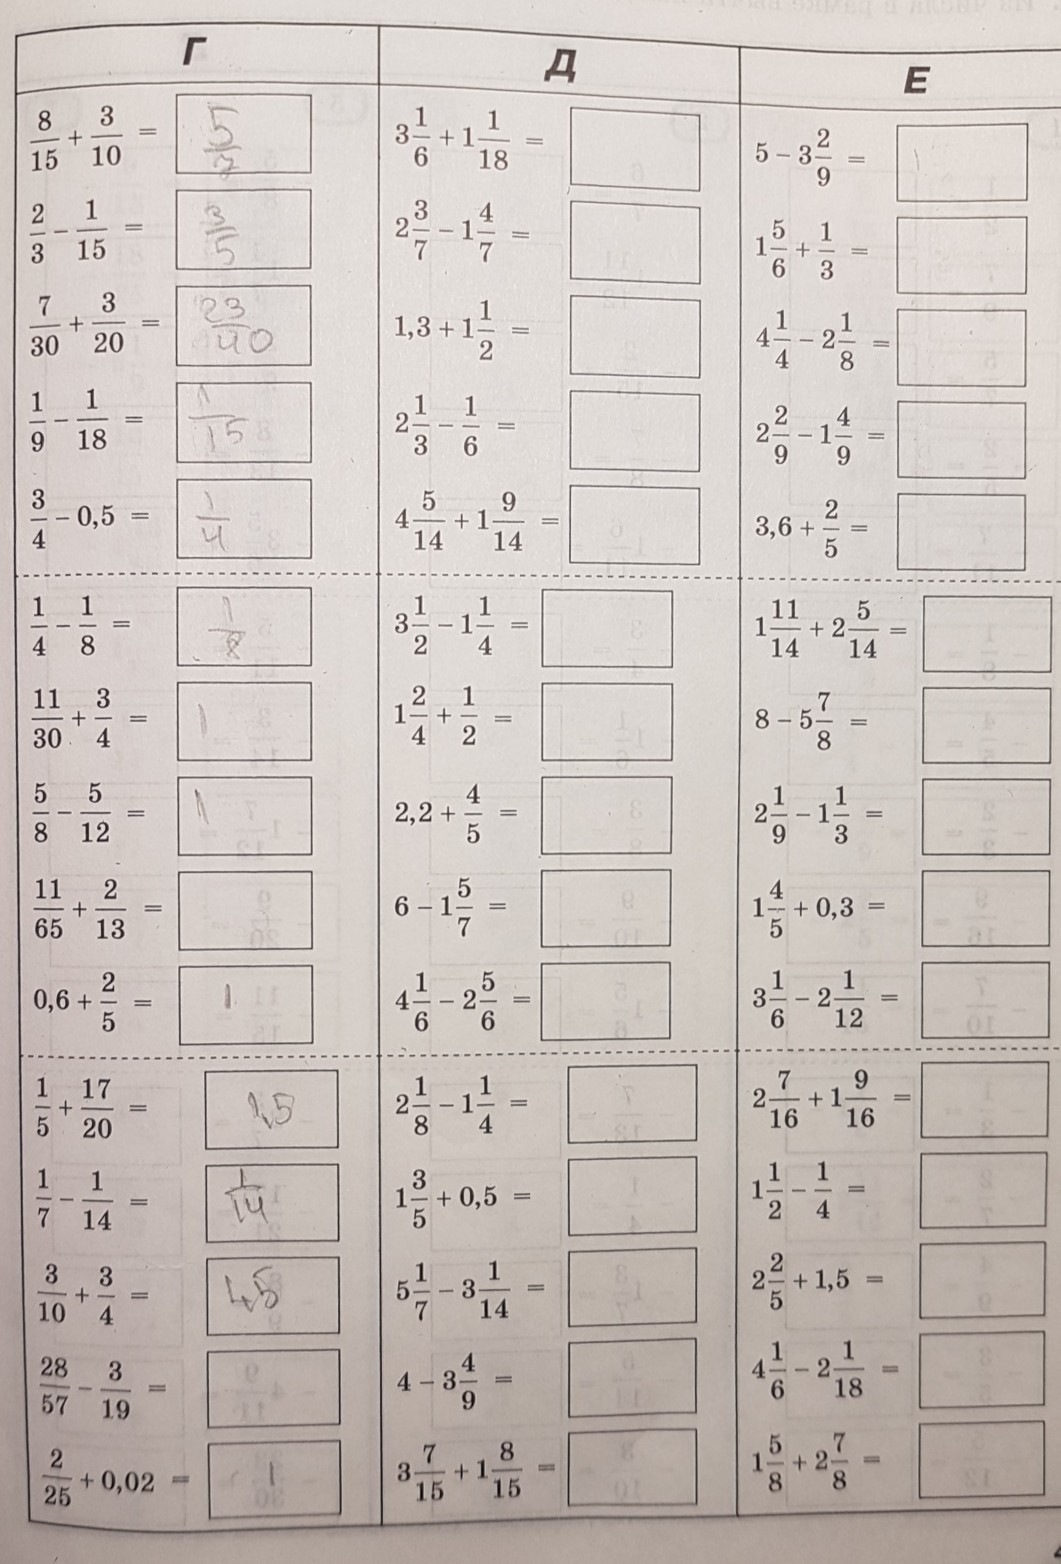 Г
8/15 + 3/10 = 5/7
2/3 − 1/15 = 3/5
7/30 + 3/20 = 23/40
1/9 − 1/18 = 1/15
3/4 − 0,5 = 1/4
1/4 − 1/8 = 1/8
11/30 + 3/4 = 1
5/8 − 5/12 = 1
11/65 + 2/13 =
0,6 + 2/5 = 1
1/5 + 17/20 = 1,5
1/7 − 1/14 = 1/14
3/10 + 3/4 = 1,5
28/57 − 3/19 =
2/25 + 0,02 = 1
Д
3 1/6 + 1 1/18 =
2 3/7 − 1 4/7 =
1,3 + 1 1/2 =
2 1/3 − 1/6 =
4 5/14 + 1 9/14 =
3 1/2 − 1 1/4 =
1 2/4 + 1/2 =
2,2 + 4/5 =
6 − 1 5/7 =
4 1/6 − 2 5/6 =
2 1/8 − 1 1/4 =
1 3/5 + 0,5 =
5 1/7 − 3 1/14 =
4 − 3 4/9 =
3 7/15 + 1 8/15 =
Е
5 − 3 2/9 =
1 5/6 + 1/3 =
4 1/4 − 2 1/8 =
2 2/9 − 1 4/9 =
3,6 + 2/5 =
1 11/14 + 2 5/14 =
8 − 5 7/8 =
2 1/9 − 1 1/3 =
1 4/5 + 0,3 =
3 1/6 − 2 1/12 =
2 7/16 + 1 9/16 =
1 1/2 − 1/4 =
2 2/5 + 1,5 =
4 1/6 − 2 1/18 =
1 5/8 + 2 7/8 =